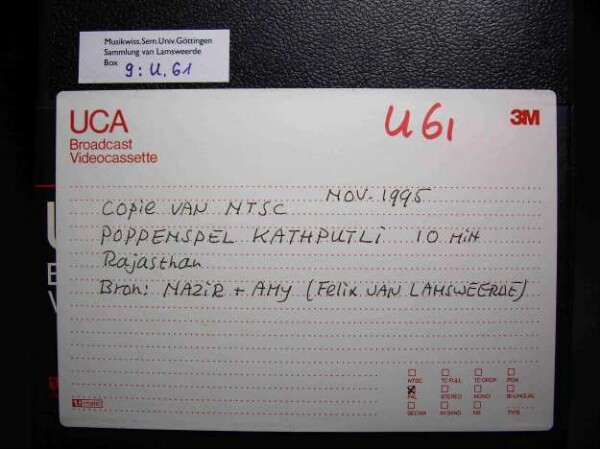 Musikwiss.Sem.Univ.Göttingen
Sammlung van Lamsweerde
Box 9: U. 61
UCA
Broadcast
Videocassette
U 61
3M
NOV. 1995
COPIE VAN NTSC
POPPENSPEL KATHPUTLI 10 MIN
Rajasthan
Bron: NAZIR + AMY (Felix VAN LAMSWEERDE)
NTSC TC FULL TC DROP PCM
PAL STEREO MONO BI-LINGUAL
SECAM M-SAND NR TYPE
U-matic